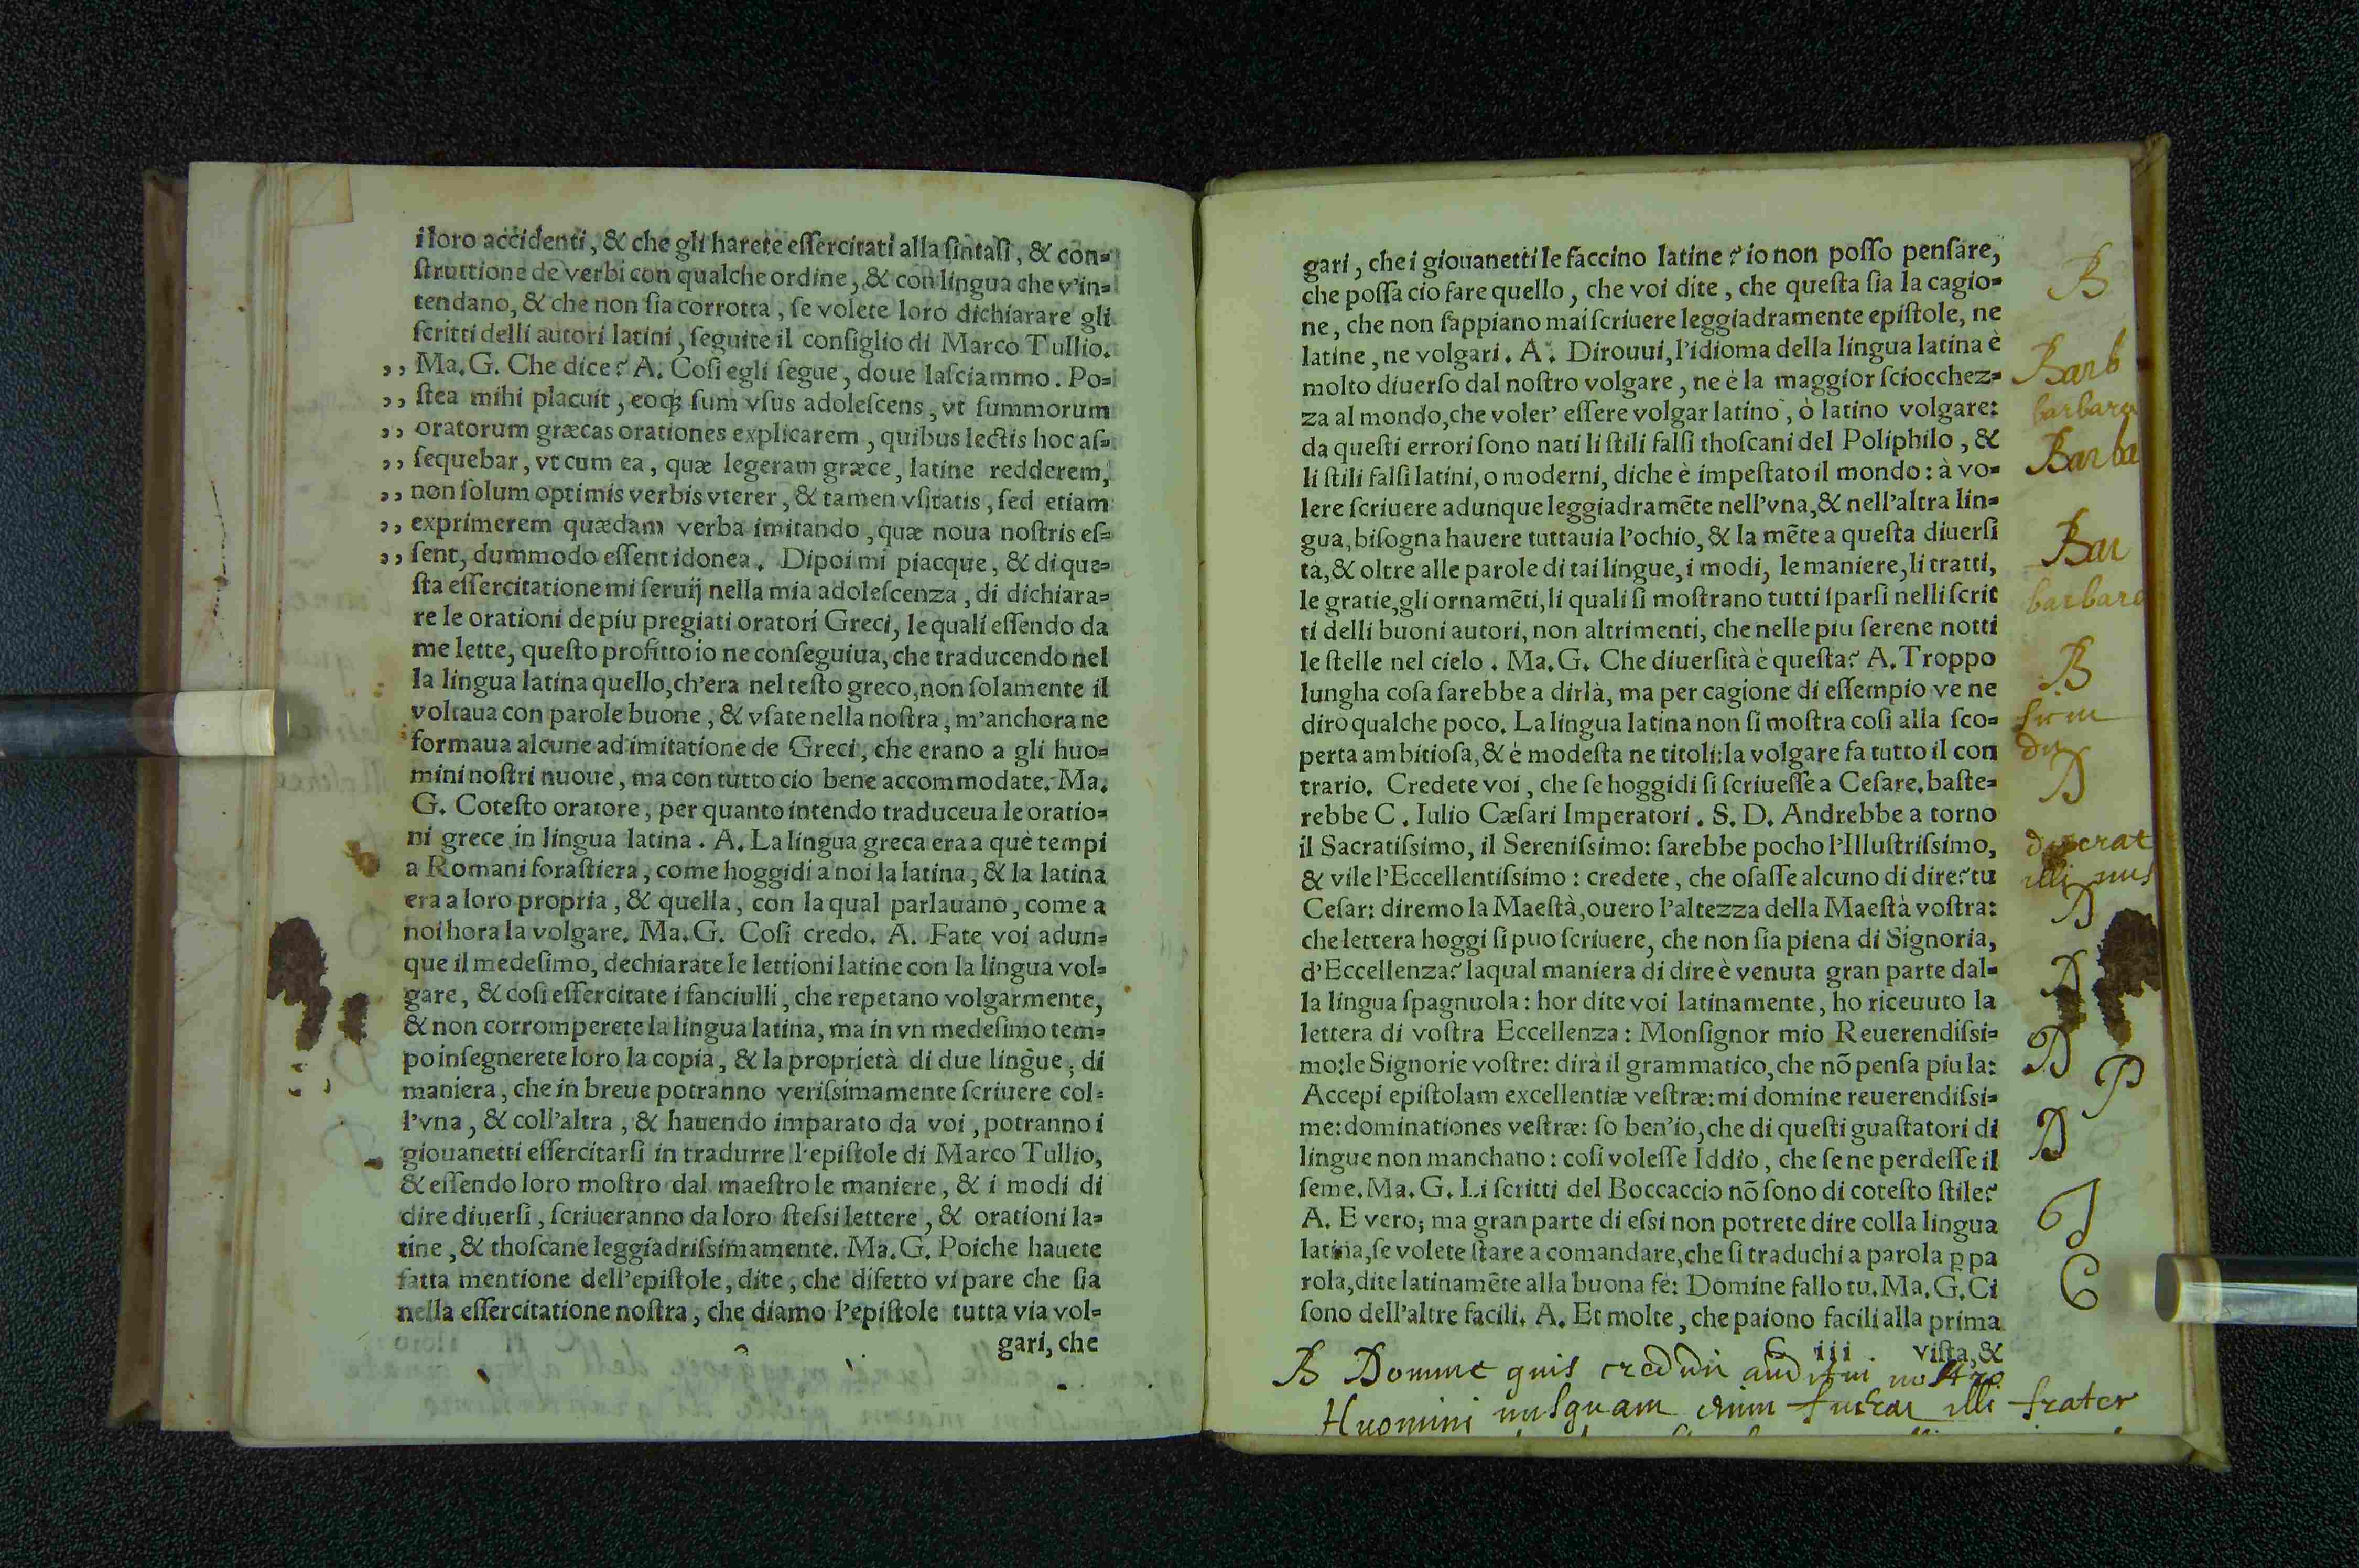 i loro accidenti, & che gli harete eſſercitati alla ſintaſi, & con=
ſtruttione de verbi con qualche ordine, & con lingua che v'in=
tendano, & che non ſia corrotta, ſe volete loro dichiarare gli
ſcritti delli autori latini, ſeguite il conſiglio di Marco Tullio.
,, Ma. G. Che dice? A. Coſi egli ſegue, doue laſciammo. Po=
,, ſtea mihi placuit, eoq; ſum vſus adoleſcens, vt ſummorum
,, oratorum græcas orationes explicarem, quibus lectis hoc aſ=
,, ſequebar, vt cum ea, quæ legeram græce, latine redderem,
,, non ſolum optimis verbis vterer, & tamen vſitatis, ſed etiam
,, exprimerem quædam verba imitando, quæ noua noſtris eſ=
,, ſent, dummodo eſſent idonea. Dipoi mi piacque, & di que=
ſta eſſercitatione mi ſeruij nella mia adoleſcenza, di dichiara=
re le orationi de piu pregiati oratori Greci, le quali eſſendo da
me lette, queſto profitto io ne conſeguiua, che traducendo nel
la lingua latina quello, ch'era nel teſto greco, non ſolamente il
voltaua con parole buone, & vſate nella noſtra, m'anchora ne
formaua alcune ad imitatione de Greci, che erano a gli huo=
mini noſtri nuoue, ma con tutto cio bene accommodate. Ma.
G. Coteſto oratore, per quanto intendo traduceua le oratio=
ni grece in lingua latina. A. La lingua greca era a què tempi
a Romani foraſtiera, come hoggidi a noi la latina, & la latina
era a loro propria, & quella, con la qual parlauano, come a
noi hora la volgare. Ma. G. Coſi credo. A. Fate voi adun=
que il medeſimo, dechiarate le lettioni latine con la lingua vol=
gare, & coſi eſſercitate i fanciulli, che repetano volgarmente,
& non corromperete la lingua latina, ma in vn medeſimo tem=
po inſegnerete loro la copia, & la proprietà di due lingue, di
maniera, che in breue potranno veriſsimamente ſcriuere col=
l'vna, & coll'altra, & hauendo imparato da voi, potranno i
giouanetti eſſercitarſi in tradurre l'epiſtole di Marco Tullio,
& eſſendo loro moſtro dal maeſtro le maniere, & i modi di
dire diuerſi, ſcriueranno da loro ſteſsi lettere, & orationi la=
tine, & thoſcane leggiadriſsimamente. Ma. G. Poiche hauete
fatta mentione dell'epiſtole, dite, che difetto vi pare che ſia
nella eſſercitatione noſtra, che diamo l'epiſtole tutta via vol=
gari, che
gari, che i giouanetti le faccino latine? io non poſſo penſare,
che poſſa cio fare quello, che voi dite, che queſta ſia la cagio=
ne, che non ſappiano mai ſcriuere leggiadramente epiſtole, ne
latine, ne volgari. A. Dirouui, l'idioma della lingua latina è
molto diuerſo dal noſtro volgare, ne è la maggior ſciocchez=
za al mondo, che voler' eſſere volgar latino, ò latino volgare:
da queſti errori ſono nati li ſtili falſi thoſcani del Poliphilo, &
li ſtili falſi latini, o moderni, di che è impeſtato il mondo: à vo=
lere ſcriuere adunque leggiadramẽte nell'vna, & nell'altra lin=
gua, biſogna hauere tuttauia l'ochio, & la mẽte a queſta diuerſi
tà, & oltre alle parole di tai lingue, i modi, le maniere, li tratti,
le gratie, gli ornamẽti, li quali ſi moſtrano tutti ſparſi nelli ſcrit
ti delli buoni autori, non altrimenti, che nelle piu ſerene notti
le ſtelle nel cielo. Ma. G. Che diuerſità è queſta? A. Troppo
lungha coſa ſarebbe a dirlà, ma per cagione di eſſempio ve ne
diro qualche poco. La lingua latina non ſi moſtra coſi alla ſco=
perta ambitioſa, & è modeſta ne titoli: la volgare fa tutto il con
trario. Credete voi, che ſe hoggidi ſi ſcriueſſe a Ceſare, baſte=
rebbe C. Iulio Cæſari Imperatori. S. D. Andrebbe a torno
il Sacratiſsimo, il Sereniſsimo: ſarebbe pocho l'Illuſtriſsimo,
& vile l'Eccellentiſsimo: credete, che oſaſſe alcuno di dire? tu
Ceſar: diremo la Maeſtà, ouero l'altezza della Maeſtà voſtra:
che lettera hoggi ſi puo ſcriuere, che non ſia piena di Signoria,
d'Eccellenza? laqual maniera di dire è venuta gran parte dal=
la lingua ſpagnuola: hor dite voi latinamente, ho riceuuto la
lettera di voſtra Eccellenza: Monſignor mio Reuerendiſsi=
mo: le Signorie voſtre: dirà il grammatico, che nõ penſa piu la:
Accepi epiſtolam excellentiæ veſtræ: mi domine reuerendiſsi=
me: dominationes veſtræ: ſo ben'io, che di queſti guaſtatori di
lingue non manchano: coſi voleſſe Iddio, che ſe ne perdeſſe il
ſeme. Ma. G. Li ſcritti del Boccaccio nõ ſono di coteſto ſtile?
A. E vero; ma gran parte di eſsi non potrete dire colla lingua
latina, ſe volete ſtare a comandare, che ſi traduchi a parola ꝑ pa
rola, dite latinamẽte alla buona fè: Domine fallo tu. Ma. G. Ci
ſono dell'altre facili. A. Et molte, che paiono facili alla prima
C iii viſta, &
B
Barb
barbara
Barba
Bar
barbara
B
D
D
D
D
P
D
C
B Domine quis credidit auditui nostro
Huomini nusquam enim illi frater